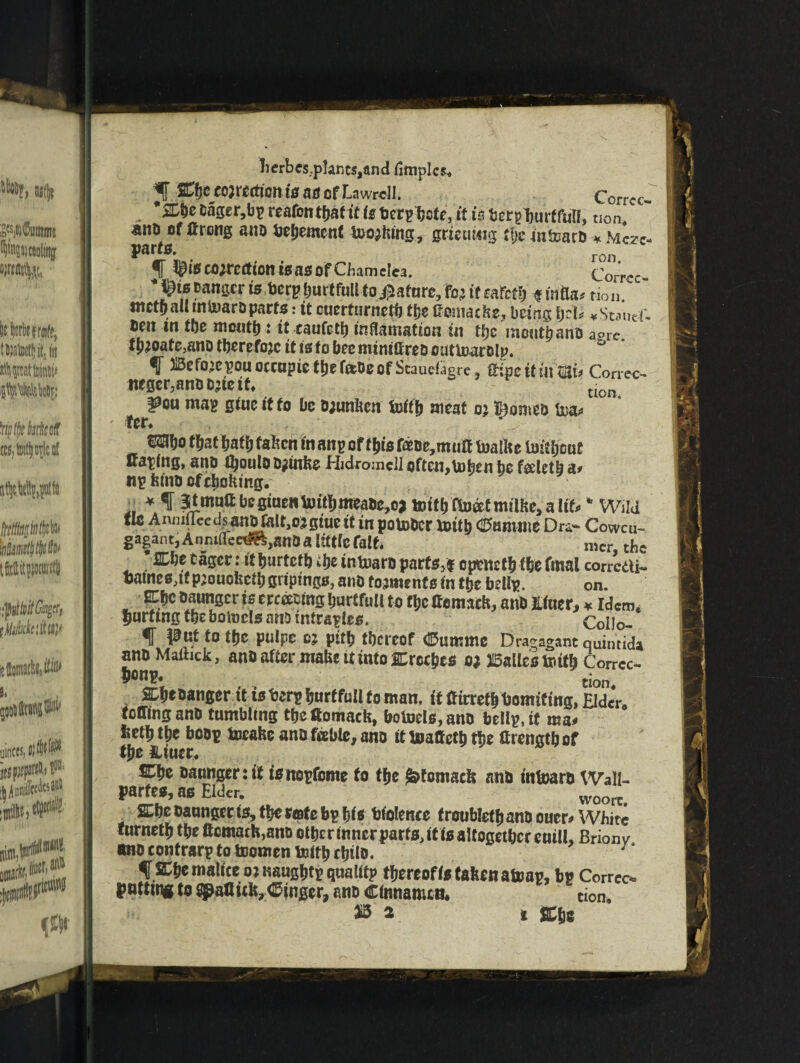 herbes, plants, and simples.
¶ The correction is as of Lawrell.
Correc-
* The dãger, by reason that it is very hote, it is very hurtfull,
tion.
and of strong and vehement working, grieuing the inward
* Meze-
parts.
ron.
¶ His correction is as of Chamelea.
Correc-
* His danger is very hurtfull to Nature, for it eateth & infla-
tion.
meth all inward parts: it ouerturneth the stomacke, being hol-
* Staues-
den in the mouth: it causeth inflamation in the mouth and
agre.
throate, and therefore it is to bee ministred outwardly.
¶ Before you occupie the sæde of Stauesagre, stipe it in Ui-
Correc-
neger, and drie it.
tion.
You may giue it to be drunken with meat or Honied wa-
ter.
Who that hath taken in any of this sæde, must walke without
staying, and should drinke Hidromell often, when he fæleth a-
ny kind of choking.
* ¶ It must be giuen with meade, or with swæt milke, a lit-
* Wild
tle Annisseeds and salt, or giue it in powder with Gumme Dra-
Cowcu-
gagant, Annisseeds, and a little salt.
mer, the
The dãger: it hurteth the inward parts, & openeth the
final correcti-
vaines, it prouoketh gripings, and torments in the belly.
on.
The daunger is excæding hurtfull to the stomack, and Liuer,
* Idem.
hurting the bowels and intrayles.
Collo-
¶ Put to the pulpe or pith thereof Gumme Dragagant
quintida
and Mastick, and after make it into Troches or Balles with
Correc-
hony.
tion.
The danger it is very hurtfull to man. it stirreth vomiting,
Elder.
tossing and tumbling the stomack, bowels, and belly, it ma-
keth the body weake and fæble, and it wasteth the strength of
the Liuer.
The daunger: it is noysome to the Stomack and inward
Wall-
partes, as Elder.
woort.
The daunger is, the roote by his violence troubleth and ouer-
White
turneth the stomack, and other inner parts, it is altogether euill,
Briony.
and contrary to women with child.
¶ The malice or naughty quality thereof is taken away, by
Correc-
putting to Mastick, Ginger, and Cinnamon.
tion.
B 2
The